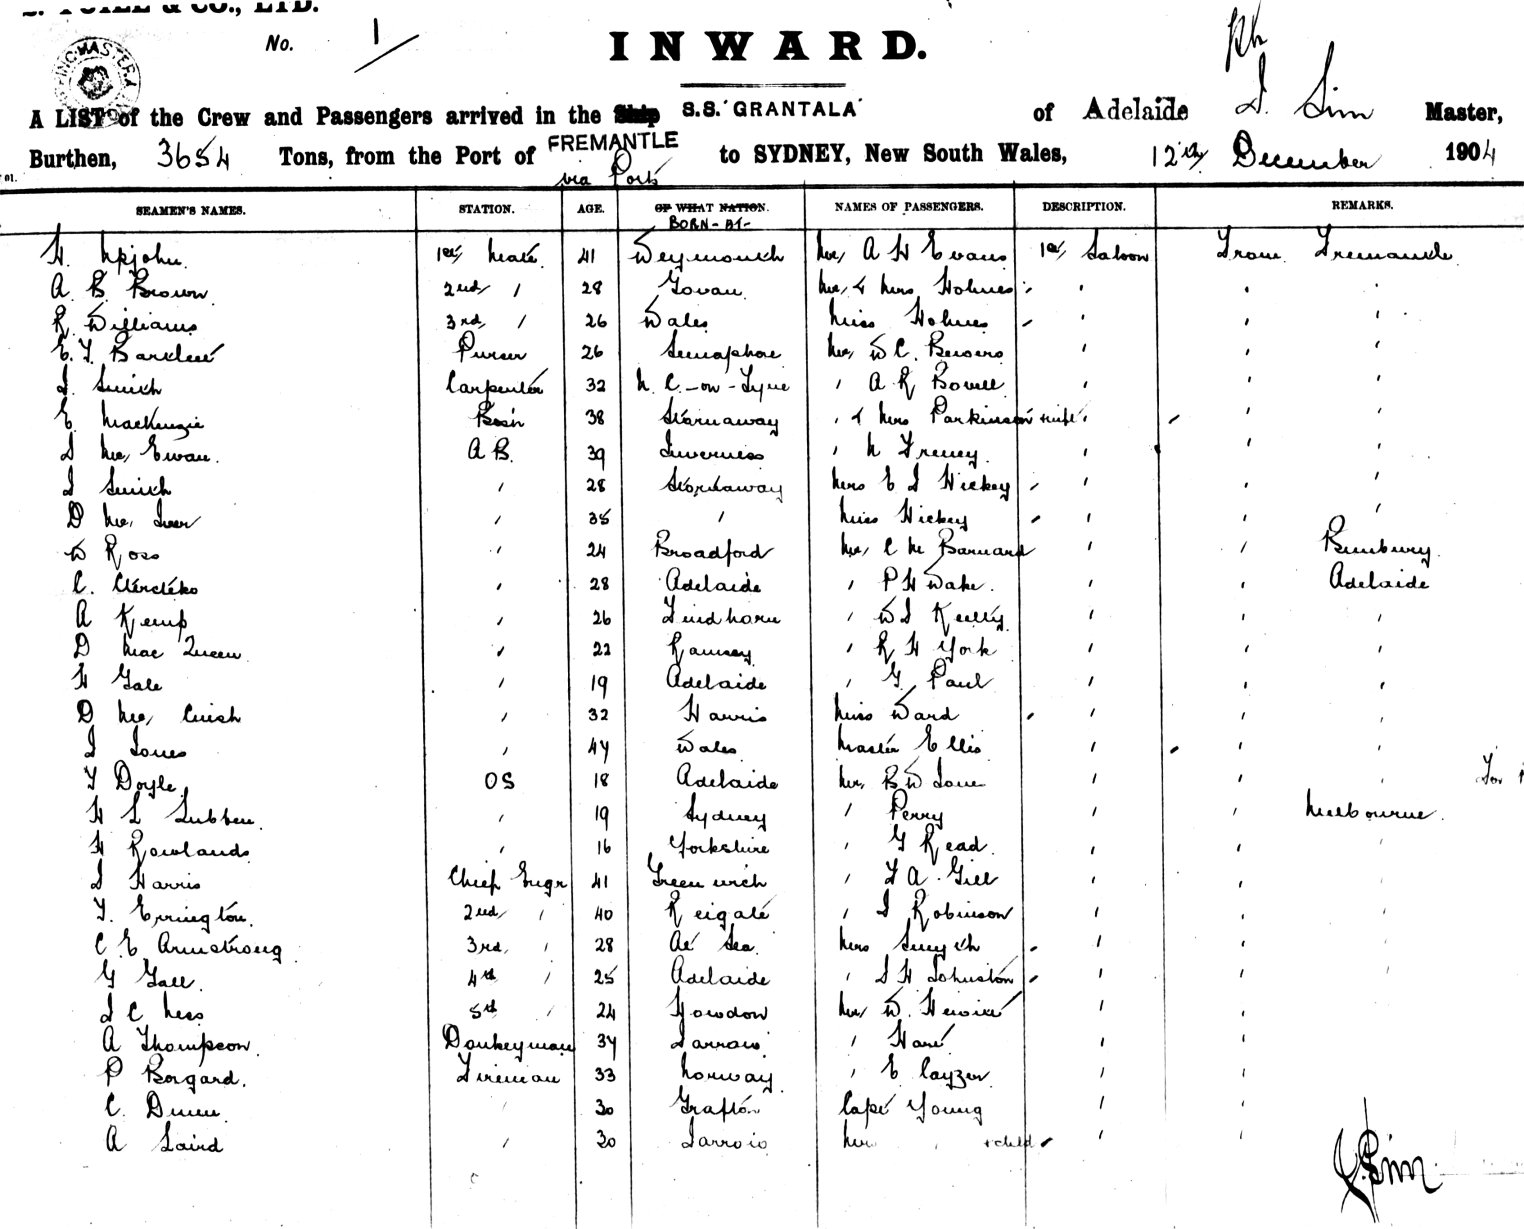 & CO., LTD.
No. 1
INWARD.
A LIST of the Crew and Passengers arrived in the Ship S.S. 'GRANTALA' of Adelaide Sim Master,
Burthen, 3654 Tons, from the Port of FREMANTLE via Ports to SYDNEY, New South Wales, 12th December 1904
SEAMEN'S NAMES. STATION. AGE. OF WHAT NATION. BORN-AT- NAMES OF PASSENGERS. DESCRIPTION. REMARKS.
H. Upjohn. 1st Mate. 41 Weymouth Mr A H Evans 1st Saloon From Fremantle
A B Brown. 2nd " 28 Govan. Mr & Mrs Holmes " " "
R Williams 3rd " 26 Wales Miss Holmes " " "
E. F. Purser 26 Semaphore Mr W C. " " "
J. Smith Carpenter 32 N. C.-on-Tyne " A R Bovell " " "
E. MacKenzie Bosn 38 Stornaway " & Mrs Parkinson " " "
J Mc Ewan. A B. 39 Inverness " N " " "
J Smith " 28 Stornaway Mrs E J Hickey " " "
D Mc Iver " 35 " Miss Hickey " " "
W Ross " 24 Broadford Mr C M Barnard " " Bunbury.
C. " 28 Adelaide " P H Wake. " " Adelaide
A Kemp " 26 Findhorn " W J " " "
D Mac Queen " 22 Ramsey " R H York " " "
H Gale " 19 Adelaide " G Paul " " "
D Mc Cuish " 32 Harris Miss Ward " " "
J Jones " 44 Wales Master Ellis " " "
F Doyle. OS 18 Adelaide Mr B W " " " For
H L Lubben. " 19 Sydney " Perry " " Melbourne.
H Rowlands. " 16 Yorkshire " G Read. " " "
J Harris Chief Engr 41 Greenwich " F A Gill " " "
F. Errington. 2nd " 40 Reigate " J Robinson " " "
C E Armstrong 3rd " 28 At Sea. Mrs Smyth " " "
G Gall. 4th " 25 Adelaide " J H Johnston " " "
J C Ness 5th " 24 Howdon Mr W. " " "
A Thompson. Donkeyman 34 Jarrow. " Hare " " "
P Borgard. Fireman 33 Norway " E Cayzer. " "
C. Dunn. " 30 Grafton Capt Young " "
A Laird " 30 Jarrow Mrs " + child " "
J. Sim